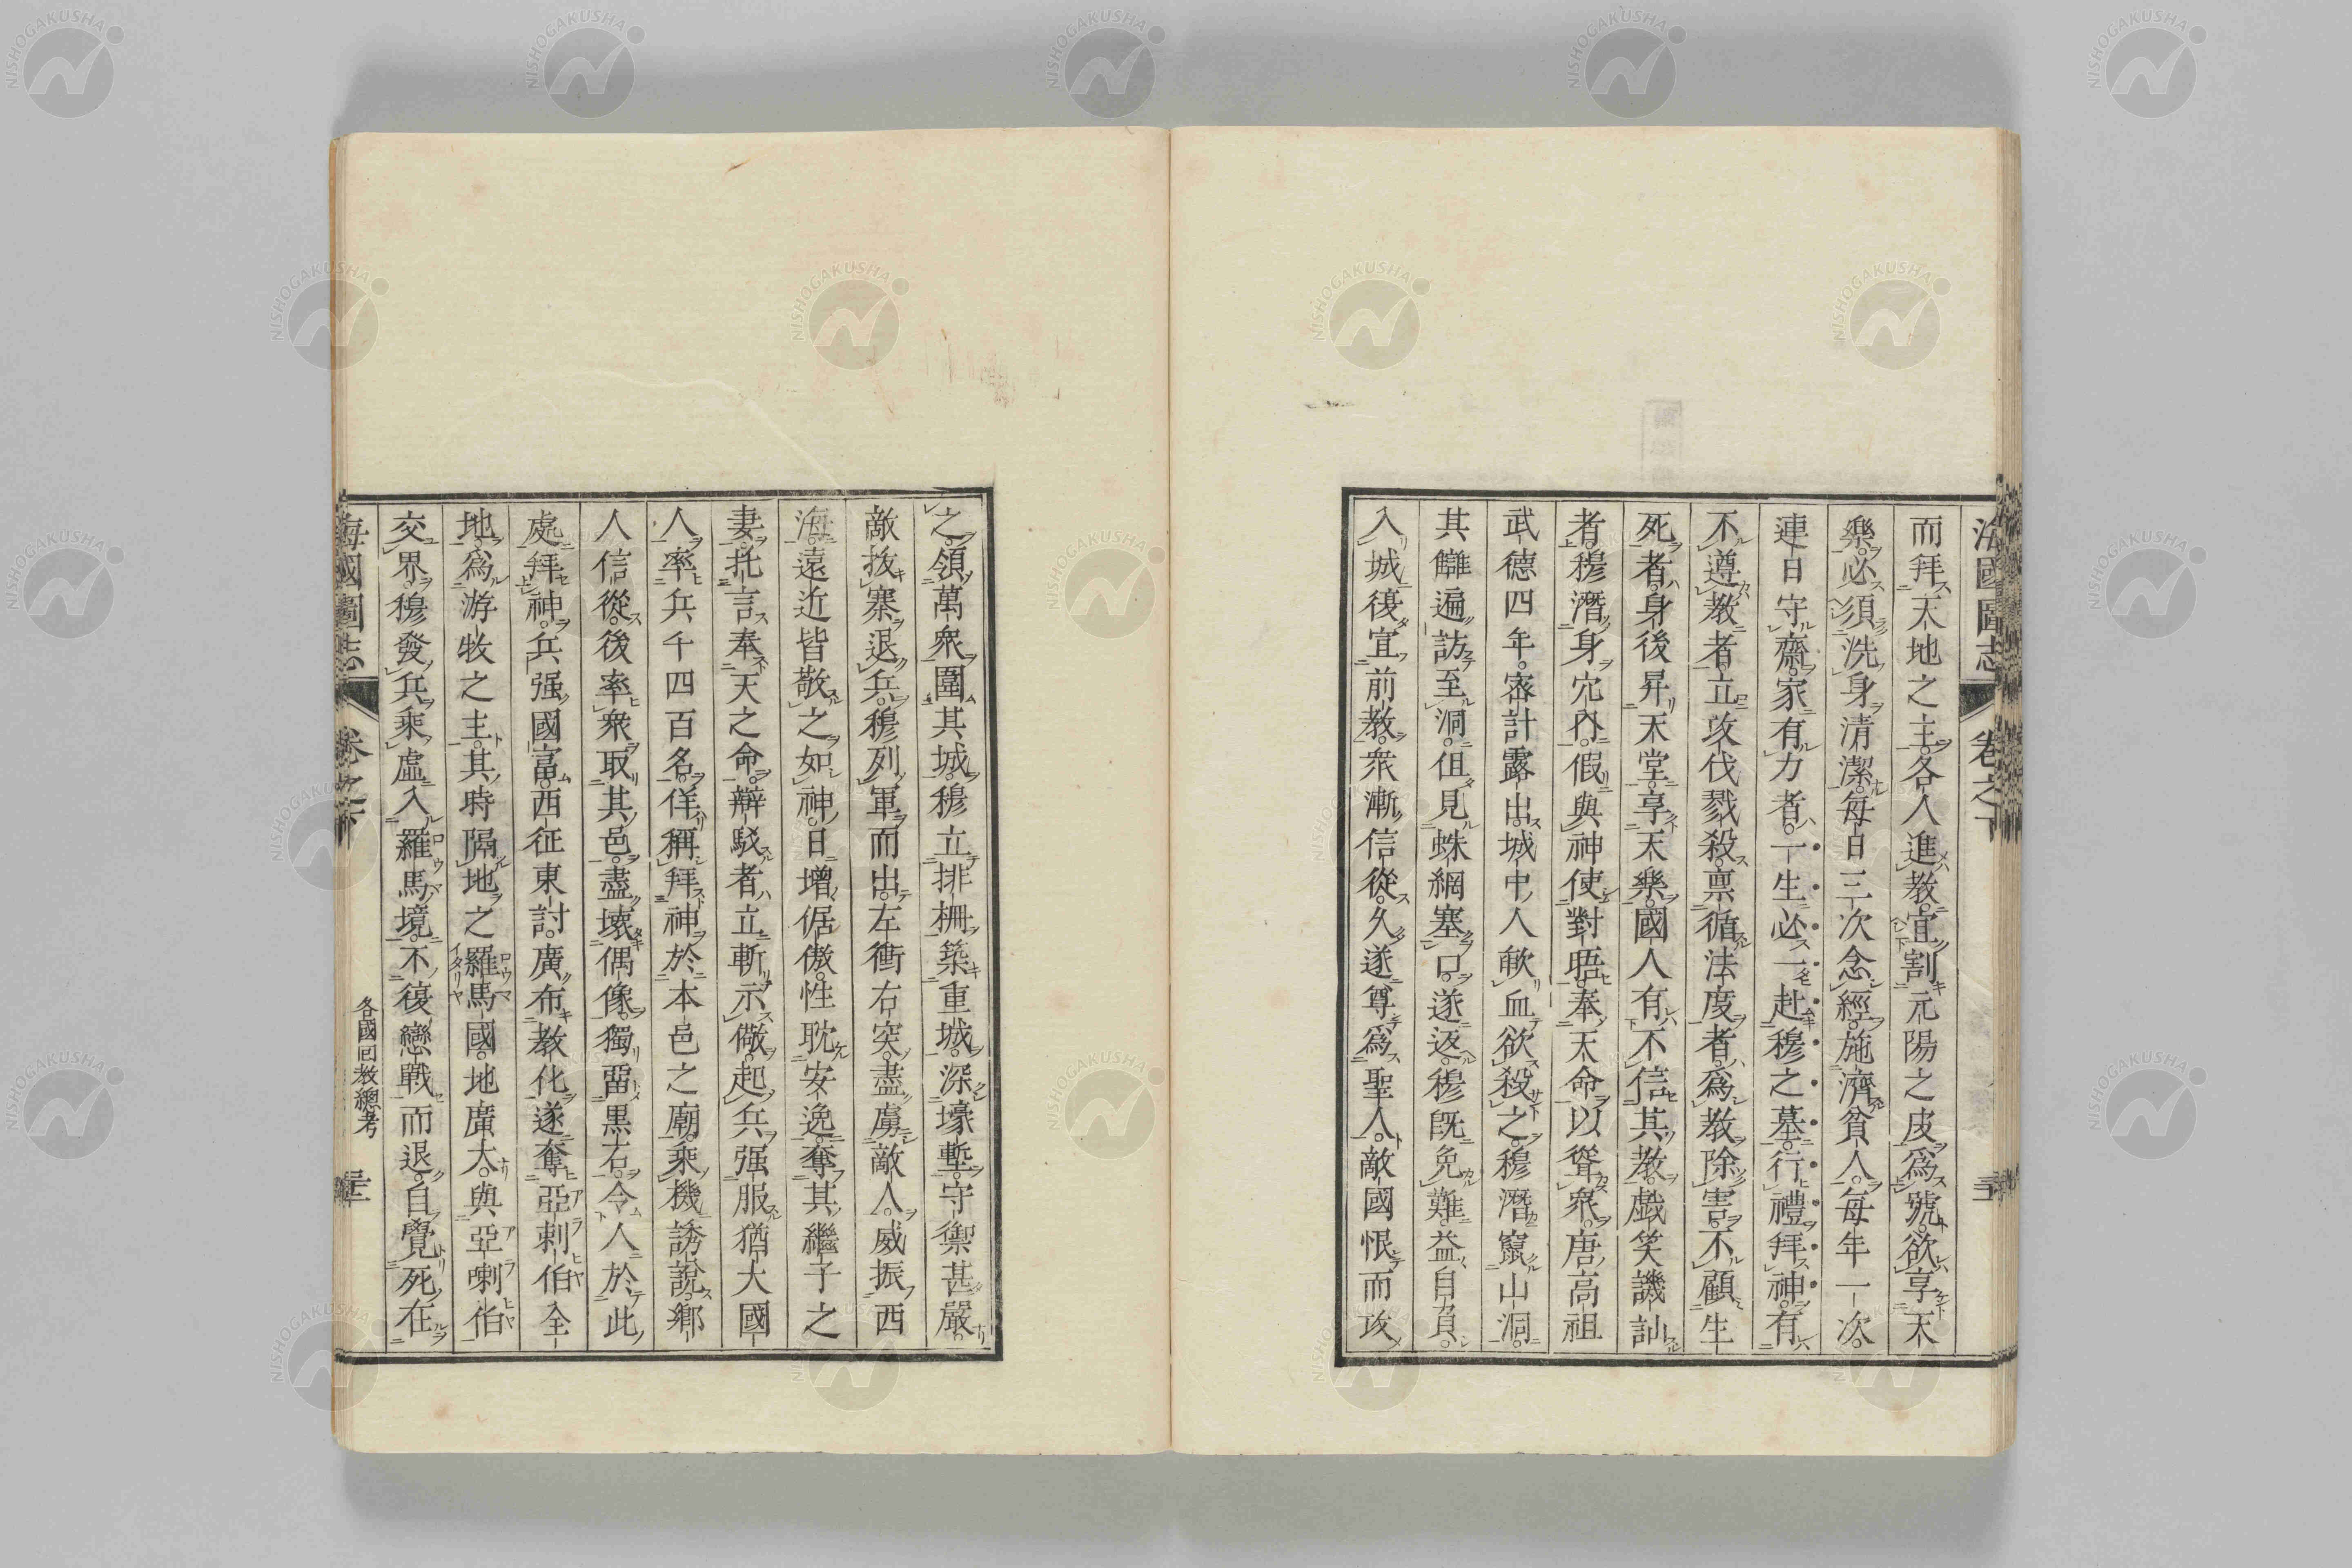 海國圖志 卷之下
而拜天地之主。各人進教。宜割元陽之皮爲號。欲享天
樂。必須洗身清潔。每日三次念經。施濟貧人。每年一次
連日守齋。家有力者。一生必一赴穆之墓。行禮拜神。有
不遵教者。立攻伐戮殺。禀循法度者。爲教除害。不顧生
死者。身後昇天堂。享天樂。國人有不信其教。戯笑譏訕
者。穆潛身穴內。假與神使對晤。奉天命以聳衆。唐高祖
武德四年。密計露出。城中人歃血欲殺之。穆潛竄山洞。
其讎遍訪至洞。但見蛛網塞口。遂返。穆既免難。益自負。
入城復宣前教。衆漸信從。久遂尊爲聖人。敵國恨而攻
之。領萬衆圍其城。穆立排柵。築重城。深壕塹。守禦甚嚴。
敵拔寨退兵。穆列軍而出。左衝右突。盡虜敵人。威振西
海。遠近皆敬之如神。日增倨傲。性耽安逸。奪其繼子之
妻。托言奉天之命。辯駁者立斬示儆。起兵强服猶大國
人。率兵千四百名。佯稱拜神於本邑之廟。乘機誘說。鄉
人信從。後率衆取其邑。盡壞偶像。獨畱黒石。令人於此
處拜神。兵强國富。西征東討。廣布教化。遂奪亞剌伯全
地。爲游牧之主。其時隔地之羅馬國。地廣大。與亞喇伯
交界。穆發兵乘虛入羅馬境。不復戀戰而退。自覺死在
海國圖志 卷之下 各國回教總考